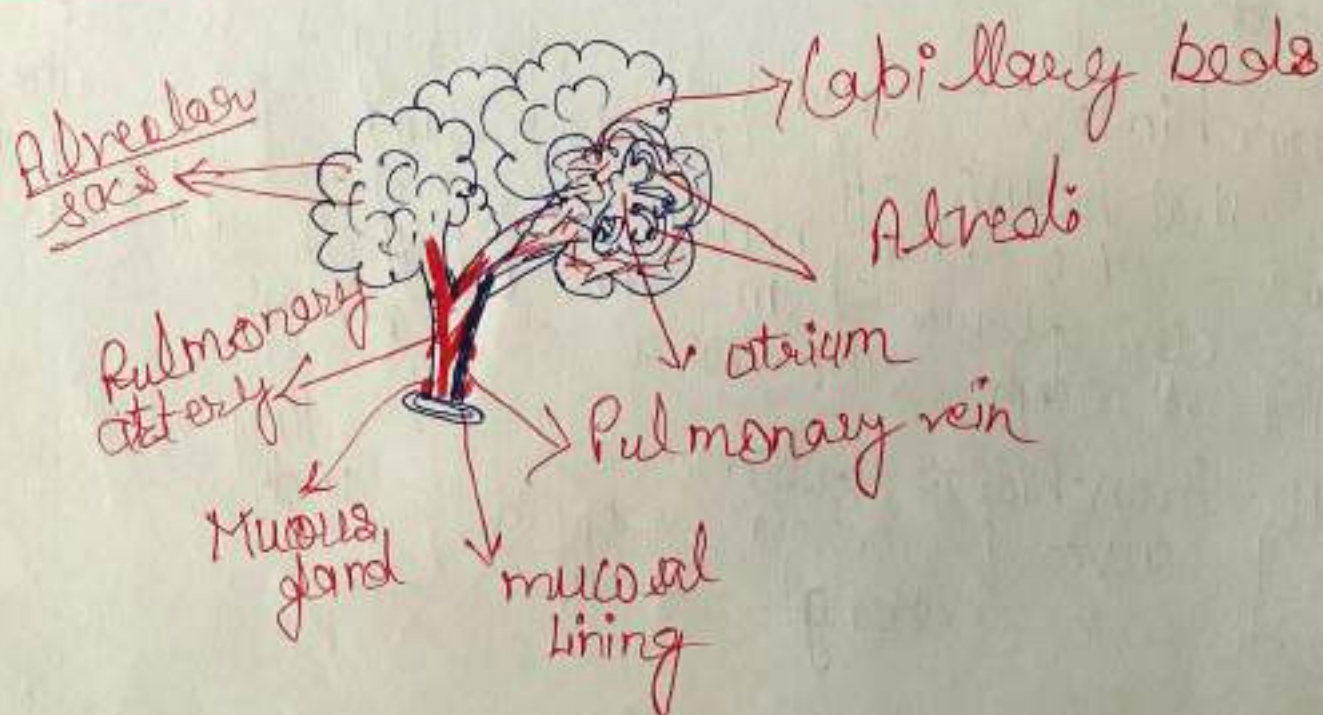 Capillary beds
Alveolar
sacs
Alveoli
Pulmonary
artery
atrium
Pulmonary vein
Mucous
gland
mucosal
Lining